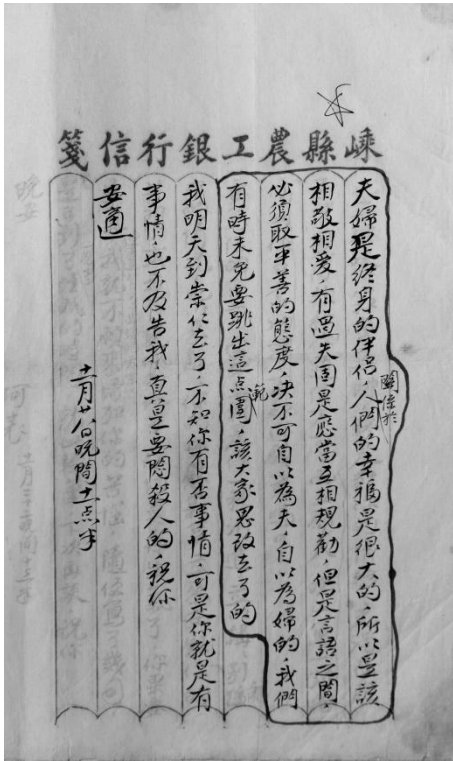 嵊縣農工銀行信箋
夫婦是終身的伴侶，關係於人們的幸福是很大的，所以是該
相敬相爱，有過失固是應當互相規勸，但是言語之間，
必須取平善的態度，决不可自以為夫，自以為婦的，我們
有時未免要跳出這点範圍，該大家思改去了的
我明天到崇仁去了，不知你有否事情，可是你就是有
事情，也不及告我，真是要悶殺人的，祝你
安適
十一月廿八日晚間十一点半